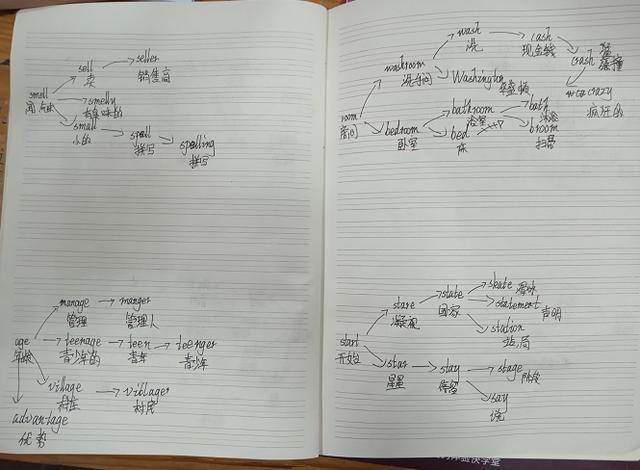 sell → seller
卖 销售商
smell
闻,气味
smelly
有臭味的
small → spell → spelling
小的 拼写 拼写
manage → manger
管理 管理人
age → teenage → teen → teenger
年龄 青少年的 青年 青少年
village → villager
村庄 村民
advantage
优势
wash → cash
洗 现金钱 crash 撞
washroom
洗手间 Washington 华盛顿
crazy
疯狂的
room
房间
bathroom → bath
浴室 沐浴
bedroom → bed broom
卧室 床 扫帚
skate 滑冰
stare → state → statement
凝视 国家 声明
station
站,局
start
开始
star → stay → stage 阶段
星星 停留
say
说